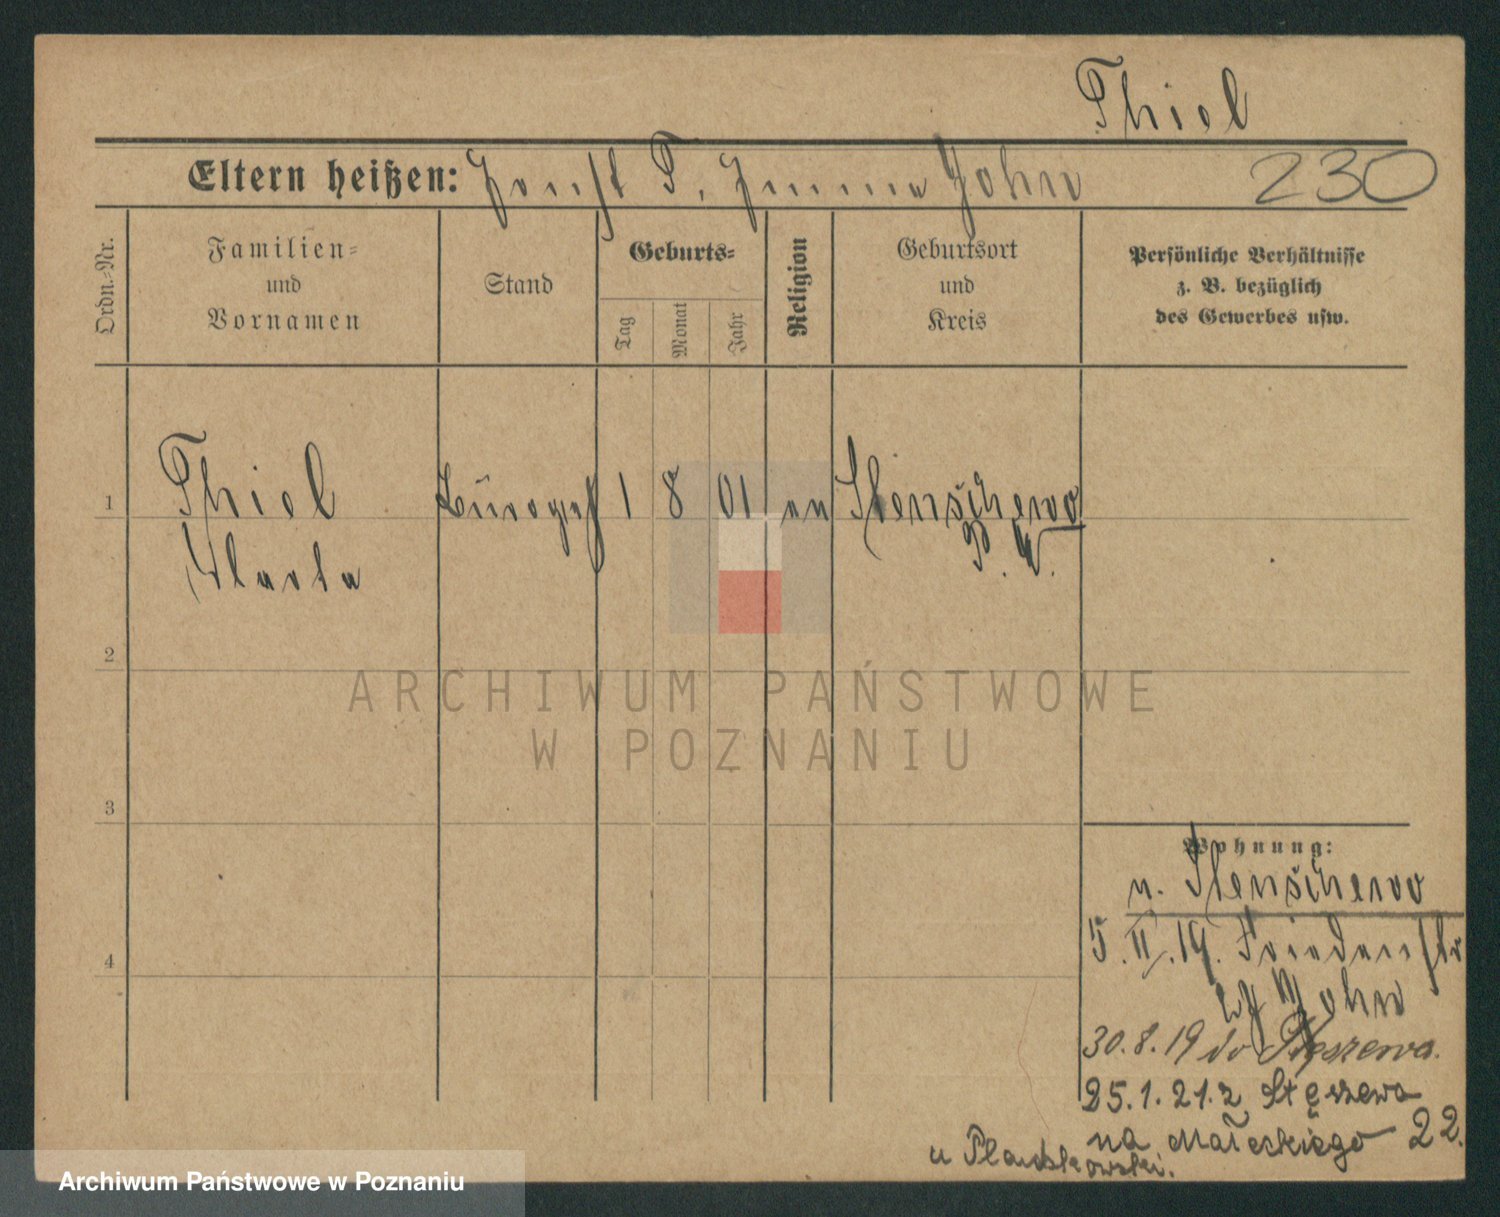 Thiel
Eltern heißen: Ernst T. Emma John
230
Ordn.-Nr.
Familien-
und
Vornamen
Stand
Geburts-
Tag
Monat
Jahr
Religion
Geburtsort
und
Kreis
Persönliche Verhältnisse
z. B. bezüglich
des Gewerbes usw.
1
Thiel
Bürogeh
1 8 01
Stenschewo
P. W.
2
ARCHIWUM PAŃSTWOWE
W POZNANIU
3
Wohnung:
n. Stenschewo
4
5. II. 19. Friedenstr
John
30. 8. 19 do Stęszewa.
25. 1. 21. z Stęszewa
na Małeckiego 22.
u
Archiwum Państwowe w Poznaniu